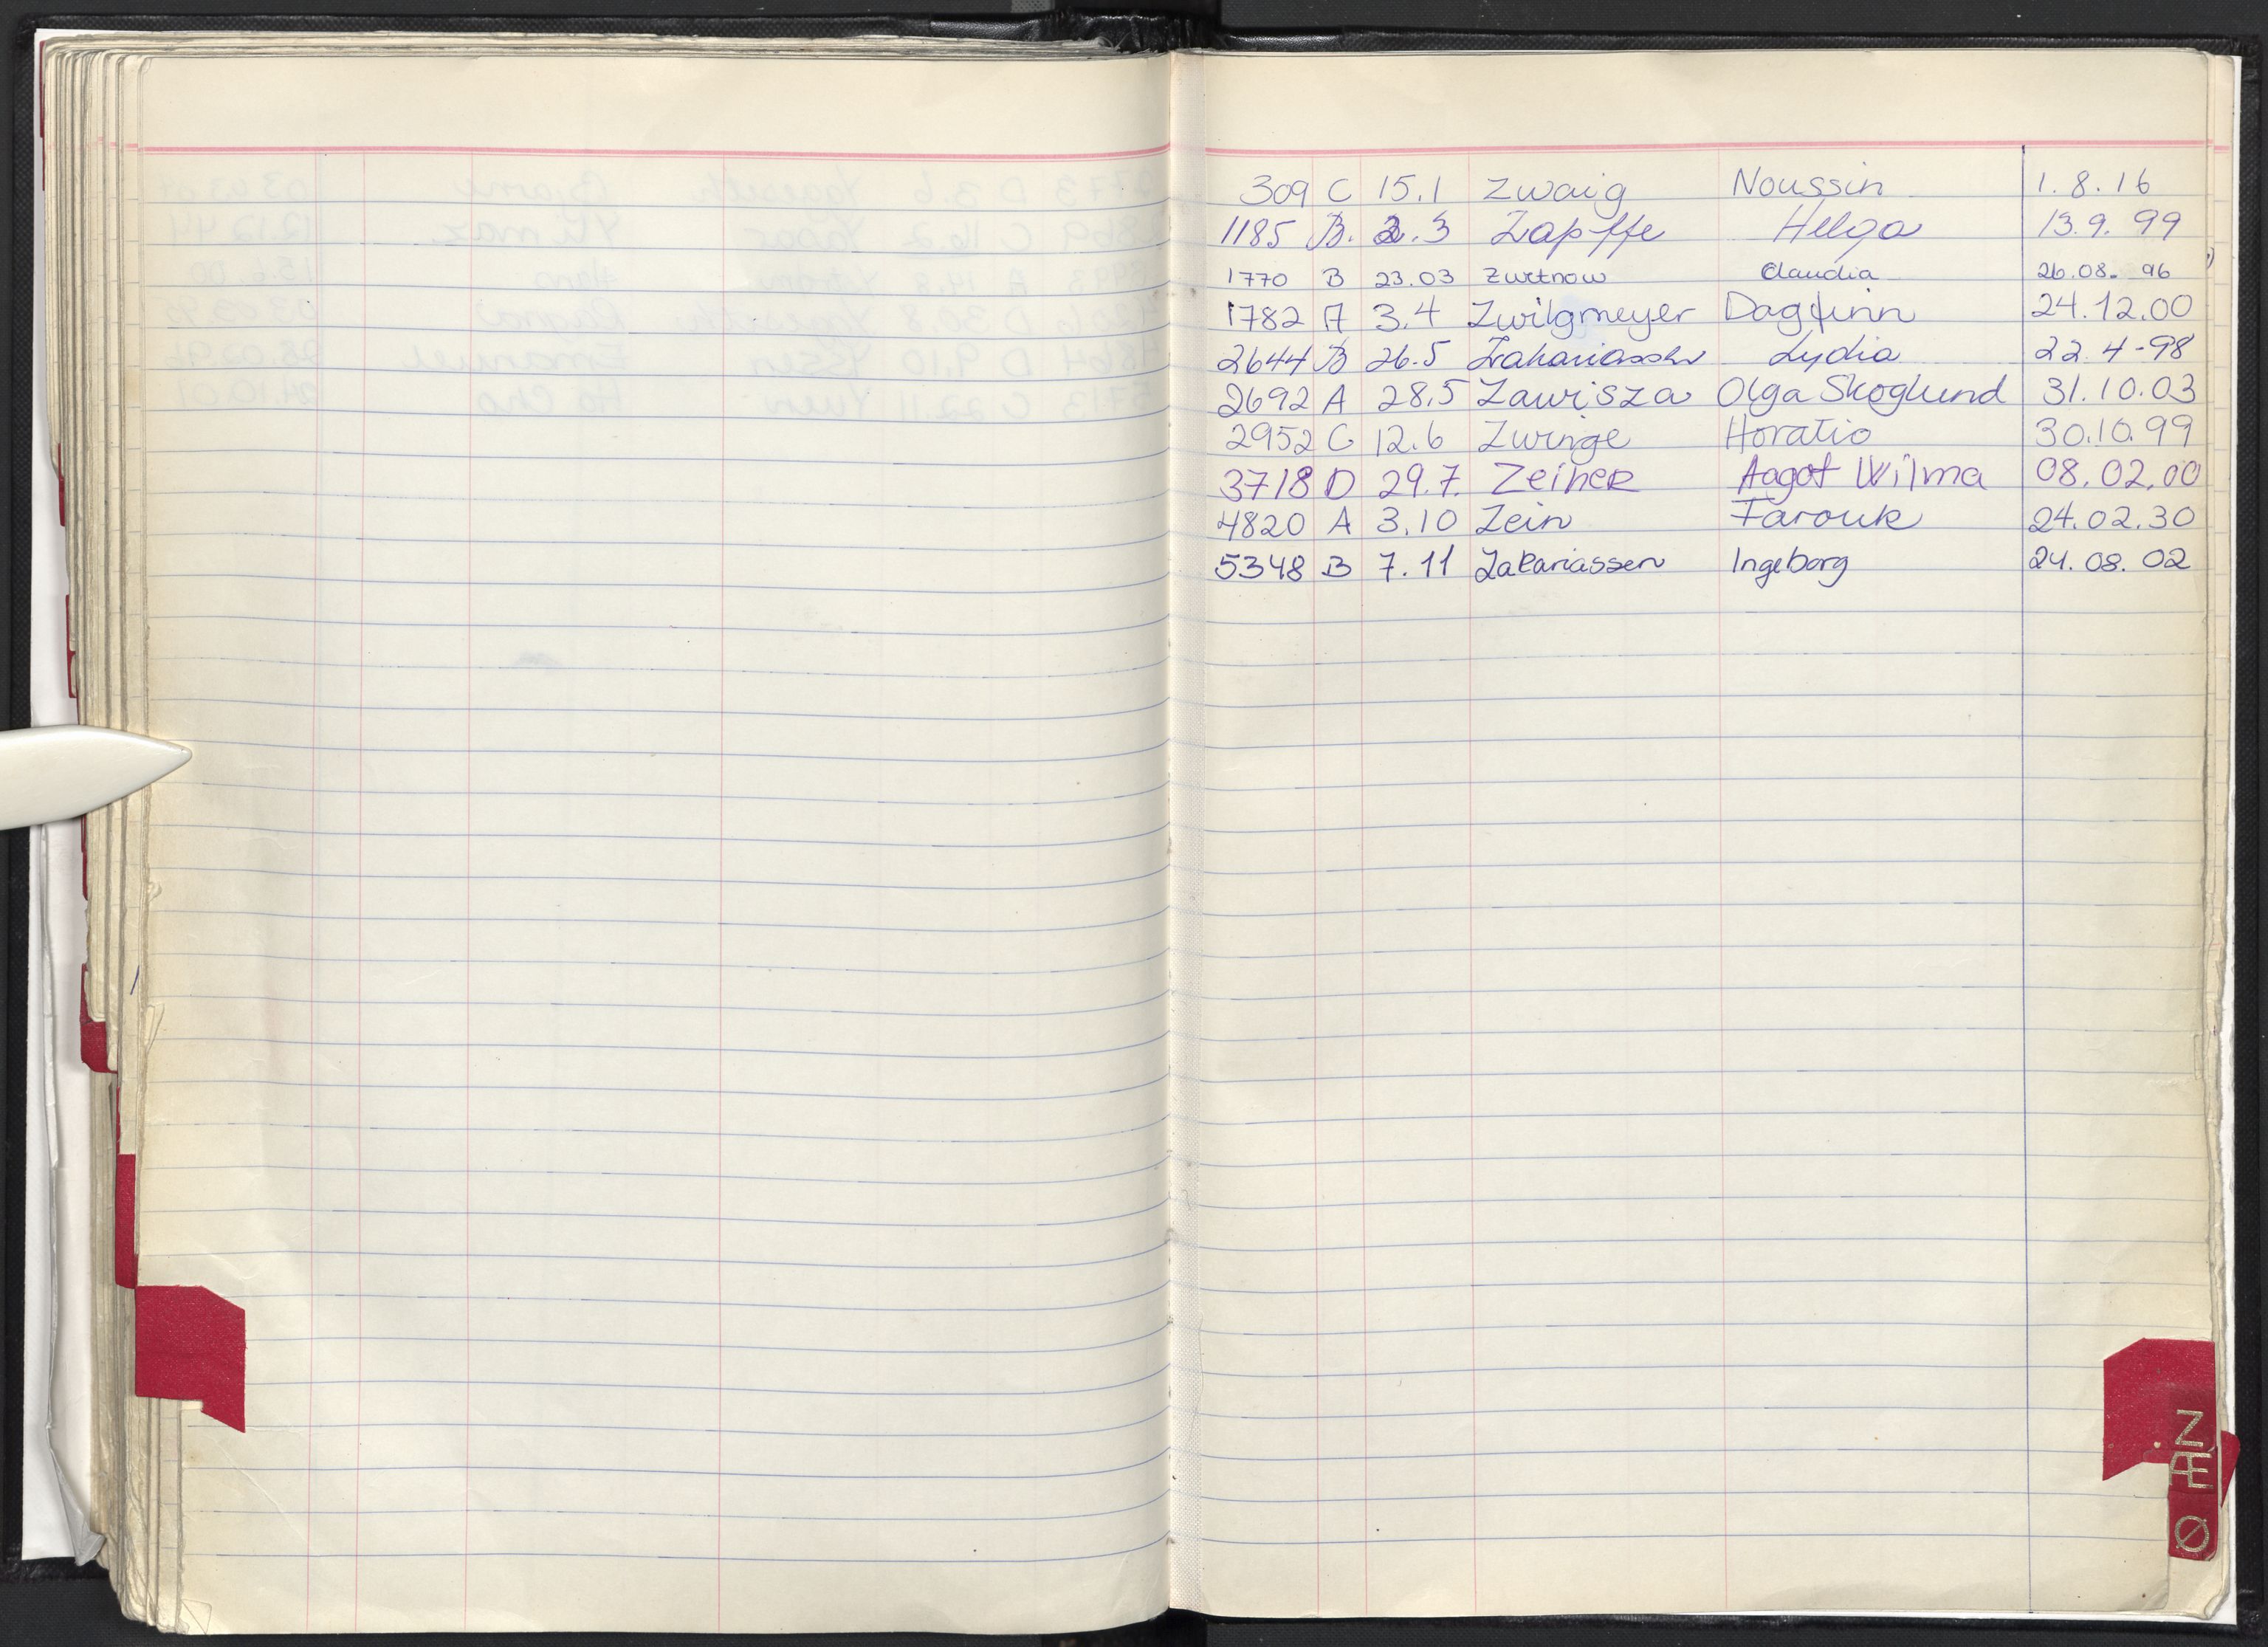 309 C 15.1 Zwaig Noussin 1.8.16
1185 B. 2.3 Zapffe Helga 13.9.99
1770 B 23.03 Zwetnow Claudia 26.08.96
1782 A 3.4 Zwilgmeyer Dagfinn 24.12.00
2644 B 26.5 Zakariassen Lydia 22.4-98
2692 A 28.5 Zawisza Olga Skoglund 31.10.03
2952 C 12.6 Zwinge Horatio 30.10.99
3718 D 29.7. Zeiner Aagot Wilma 08.02.00
4820 A 3.10 Zein Farouk 24.02.30
5348 B 7.11 Zakariassen Ingeborg 24.08.02
Z
Æ
Ø